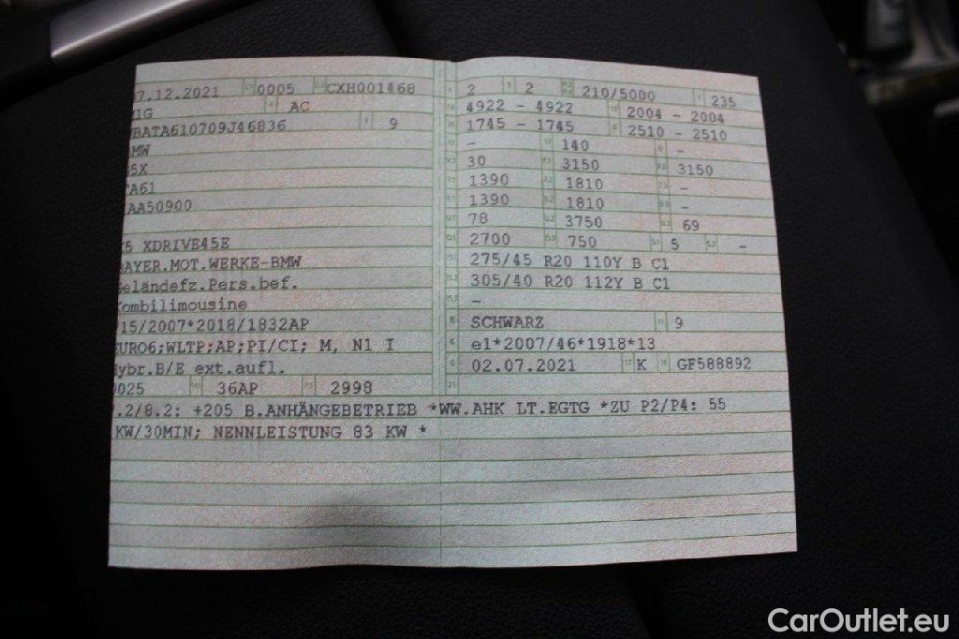 7.12.2021 0005 CXH001468
1G AC
BATA610709J46836 9
MW
5X
A61
AA50900
5 XDRIVE45E
AYER.MOT.WERKE-BMW
eländefz.Pers.bef.
ombilimousine
15/2007*2018/1832AP
EURO6;WLTP;AP;PI/CI; M, N1 I
ybr.B/E ext.aufl.
0025 36AP 2998
.2/8.2: +205 B.ANHÄNGEBETRIEB *WW.AHK LT.EGTG *ZU P2/P4: 55
KW/30MIN; NENNLEISTUNG 83 KW *
2 2 210/5000 235
4922 - 4922 2004 - 2004
1745 - 1745 2510 - 2510
- 140 -
30 3150 3150
1390 1810 -
1390 1810 -
78 3750 69
2700 750 5 -
275/45 R20 110Y B C1
305/40 R20 112Y B C1
-
SCHWARZ 9
e1*2007/46*1918*13
02.07.2021 K GF588892
CarOutlet.eu